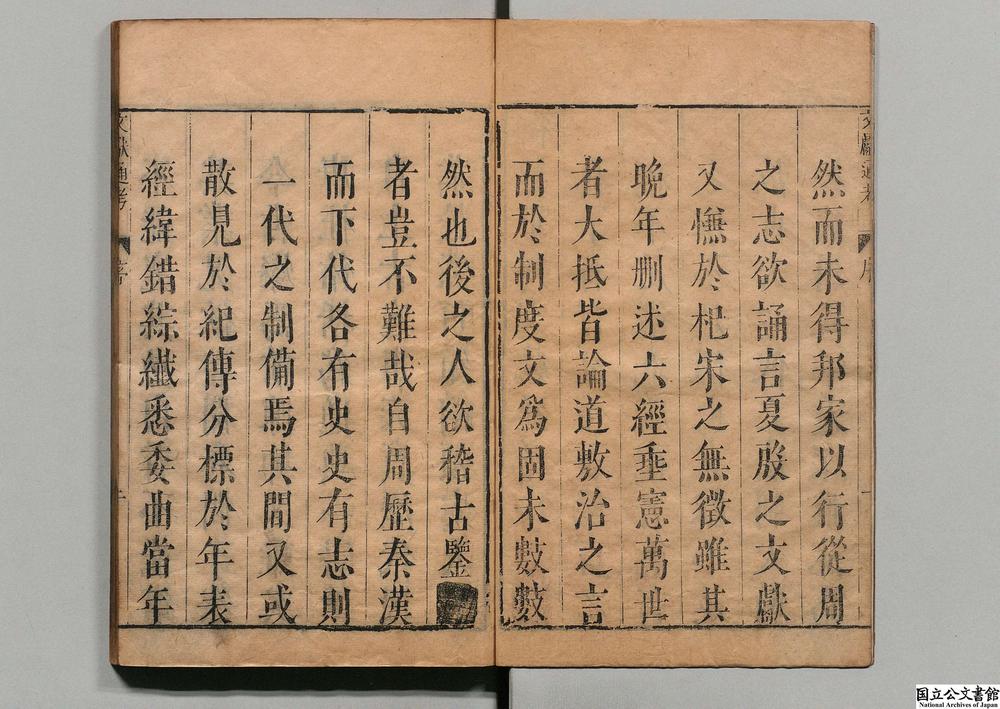 然而未得邦家以行從周
之志欲誦言夏殷之文獻
又憮於杞宋之無徵雖其
晚年刪述六經垂憲萬世
者大抵皆論道敷治之言
而於制度文爲固未數數
然也後之人欲稽古鑒
者豈不難哉自周歷秦漢
而下代各有史史有志則
一代之制備焉其間又或
散見於紀傳分標於年表
經緯錯綜纖悉委曲當年
文獻通考
序
文獻通考
序
国立公文書館
National Archives of Japan